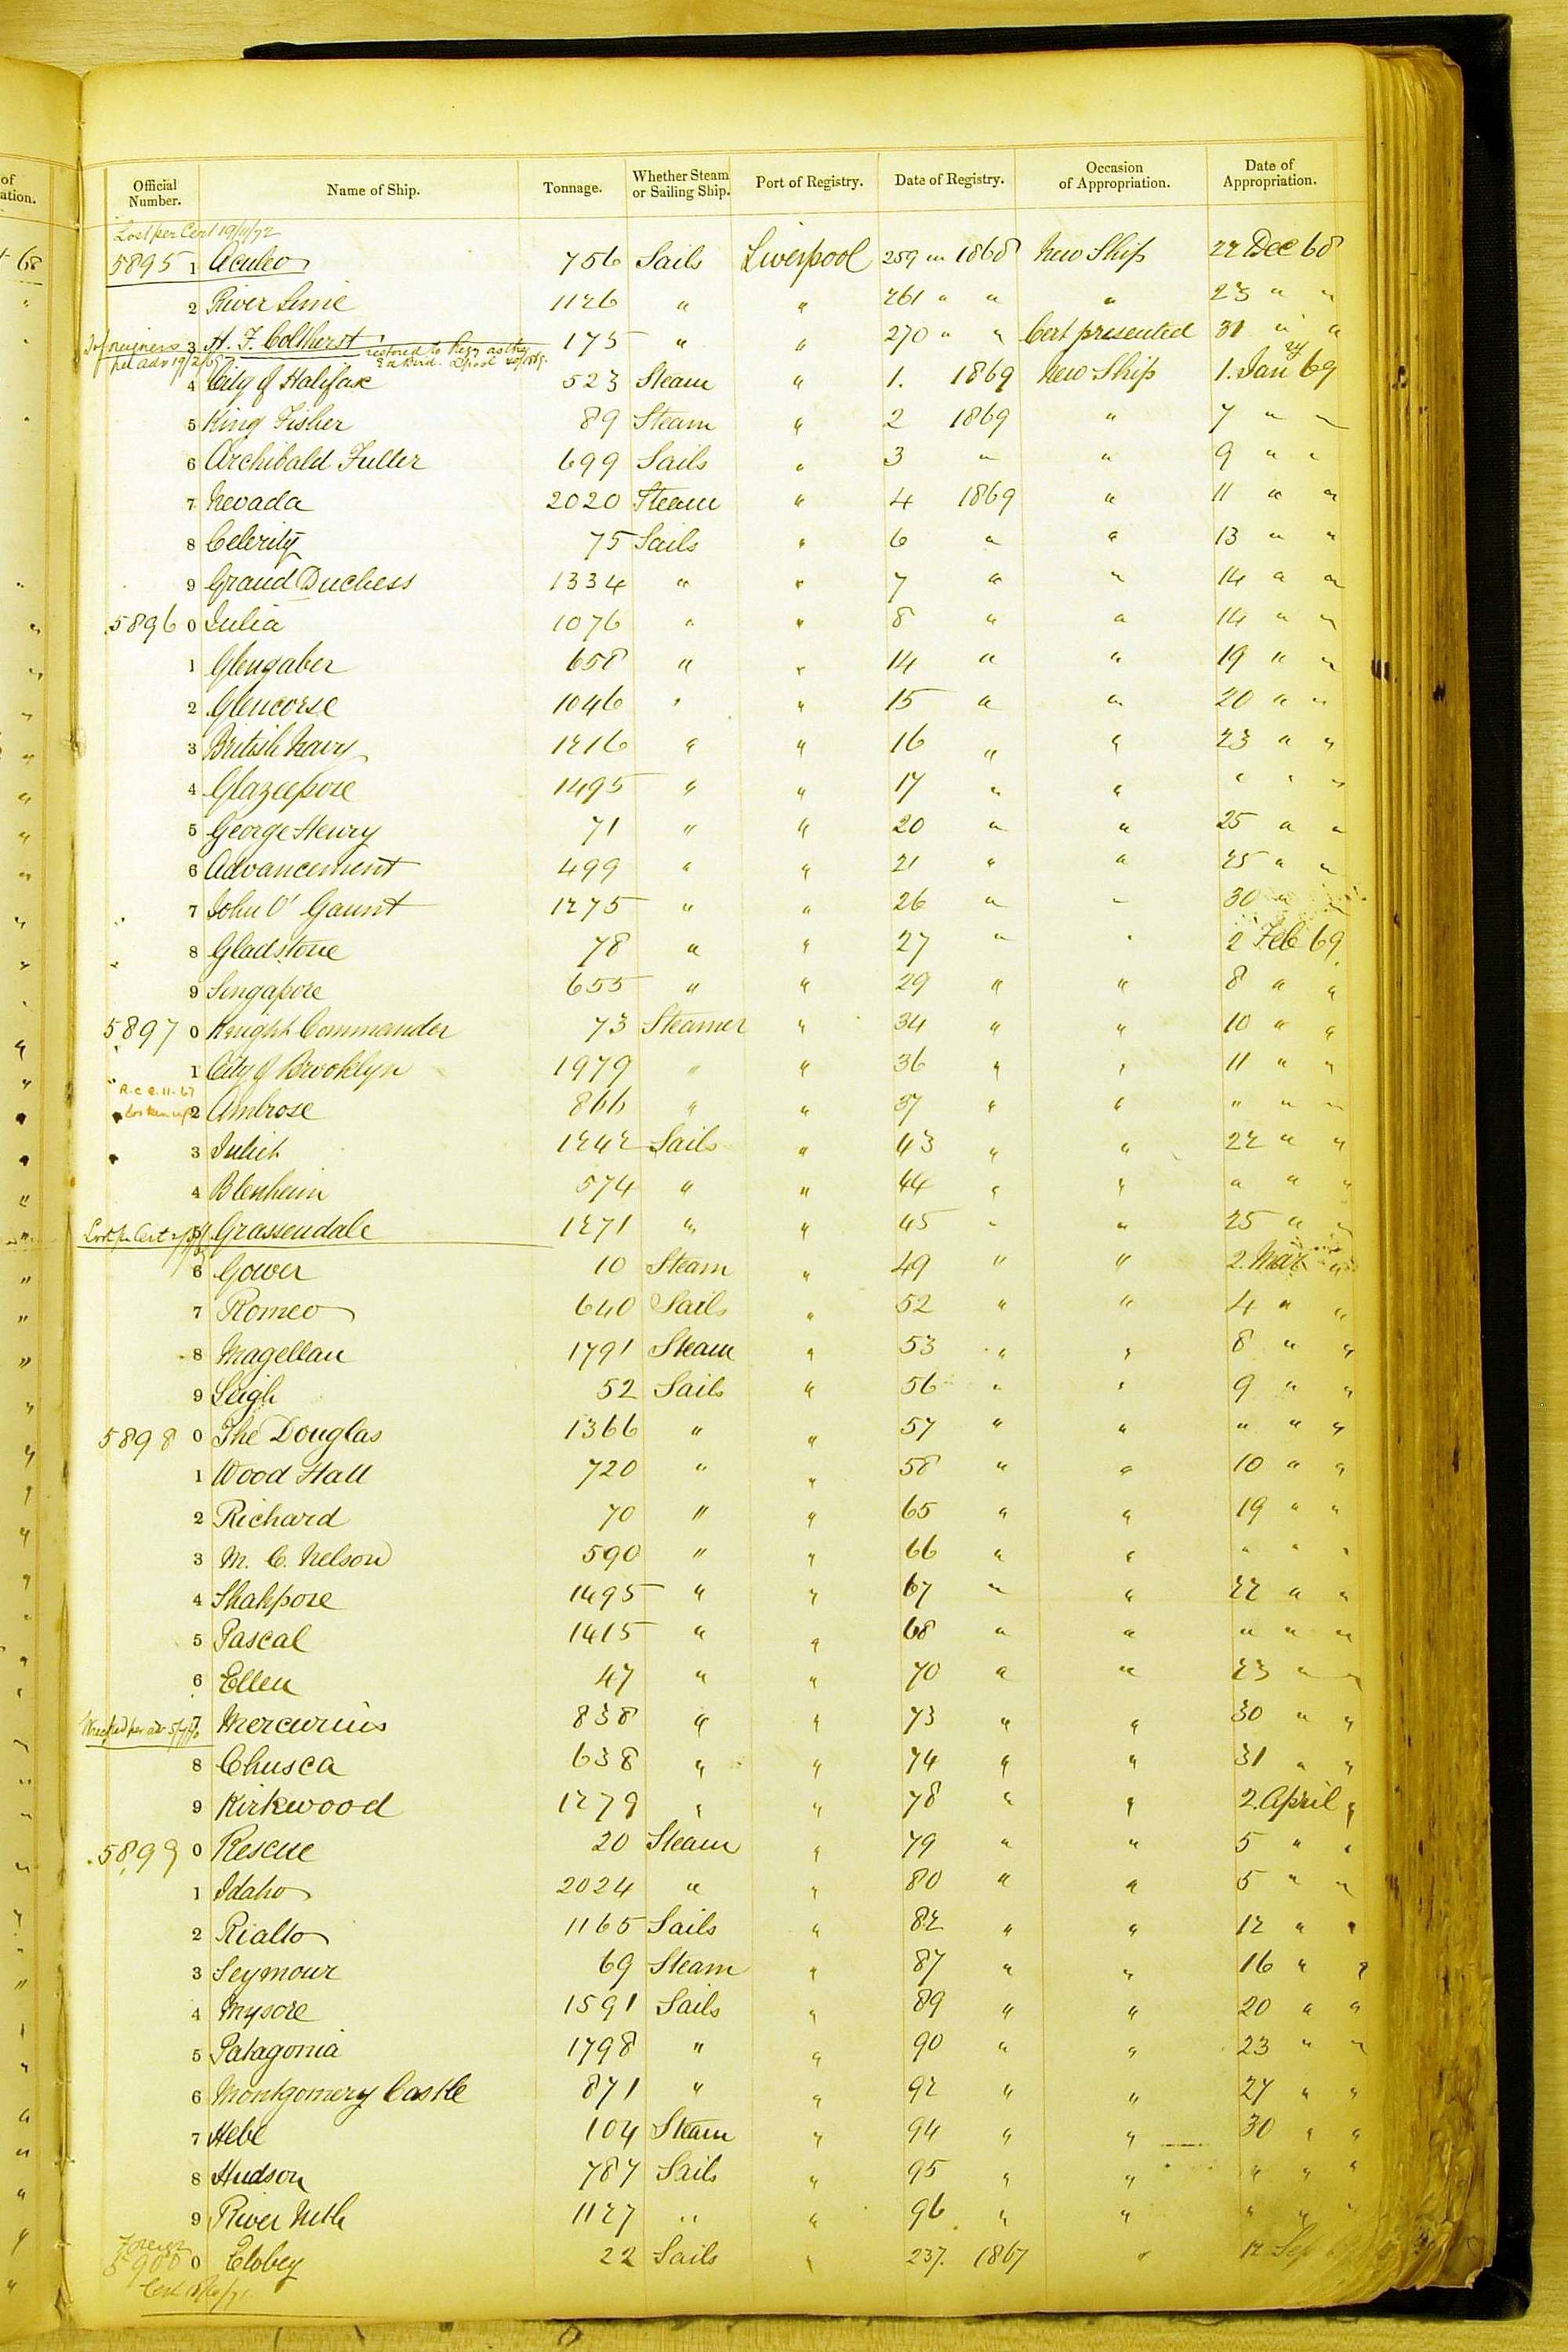 of
Official Number. Name of Ship. Tonnage. Whether Steam or Sailing Ship. Port of Registry. Date of Registry. Occasion of Appropriation. Date of Appropriation.
ation.
Lost per Cert 19/11/72
68
58951 Aculeo 756 Sails Liverpool 259 in 1868 New Ship 22 Dec 68
2 River Lune 1126 " " 261 " " " 23 " "
3 H. F. Coltherst 175 " " 270 " " Cert presented 31 " "
restored to Regy as the
4 City of Halifax 523 Steam " 1. 1869 New Ship 1. Jan 69
5 King Fisher 89 Steam " 2 1869 " 7 " "
6 Archibald Fuller 699 Sails " 3 " " 9 " "
7 Nevada 2020 Steam " 4 1869 " 11 " "
8 Celerity 75 Sails " 6 " " 13 " "
9 Grand Duchess 1334 " " 7 " " 14 " "
5896 0 Julia 1076 " " 8 " " 14 " "
1 Glengaber 658 " " 14 " " 19 " "
2 Glencorse 1046 " " 15 " " 20 " "
3 British Navy 1216 " " 16 " " 23 " "
4 Ghazeepore 1495 " " 17 " " " " "
5 George Henry 71 " " 20 " " 25 " "
6 Advancement 499 " " 21 " " 25 " "
7 John O' Gaunt 1275 " " 26 " " 30 " "
8 Gladstone 78 " " 27 " " 2 Feb 69
9 Singapore 655 " " 29 " " 8 " "
5897 0 Knight Commander 73 Steamer " 34 " " 10 " "
1 City of Brooklyn 1979 " " 36 " " 11 " "
2 Ambrose 866 " " 37 " " " " "
3 Juliet 1242 Sails " 43 " " 22 " "
4 Blenheim 574 " " 44 " " " " "
Lost per Cert
5 Grassendale 1271 " " 45 " " 25 " "
6 Gower 10 Steam " 49 " " 2. Mar "
7 Romeo 640 Sails " 52 " " 4 " "
8 Magellan 1791 Steam " 53 " " 8 " "
9 Leigh 52 Sails " 56 " " 9 " "
5898 0 The Douglas 1366 " " 57 " " " " "
1 Wood Hall 720 " " 58 " " 10 " "
2 Richard 70 " " 65 " " 19 " "
3 M. C. Nelson 590 " " 66 " " " " "
4 Shahpore 1495 " " 67 " " 22 " "
5 Pascal 1415 " " 68 " " " " "
6 Ellen 47 " " 70 " " 23 " "
Wrecked per adv
7 Mercurius 838 " " 73 " " 30 " "
8 Chusca 638 " " 74 " " 31 " "
9 Kirkwood 1279 " " 78 " " 2. April "
5899 0 Rescue 20 Steam " 79 " " 5 " "
1 Idaho 2024 " " 80 " " 5 " "
2 Rialto 1165 Sails " 82 " " 12 " "
3 Seymour 69 Steam " 87 " " 16 " "
4 Mysore 1591 Sails " 89 " " 20 " "
5 Patagonia 1798 " " 90 " " 23 " "
6 Montgomery Castle 871 " " 92 " " 27 " "
7 Hebe 104 Steam " 94 " " 30 " "
8 Hudson 787 Sails " 95 " " " " "
9 River Nith 1127 " " 96 " " " " "
Foreign
5900 0 Elobey 22 Sails " 237. 1867 " 12 Sep
Cert